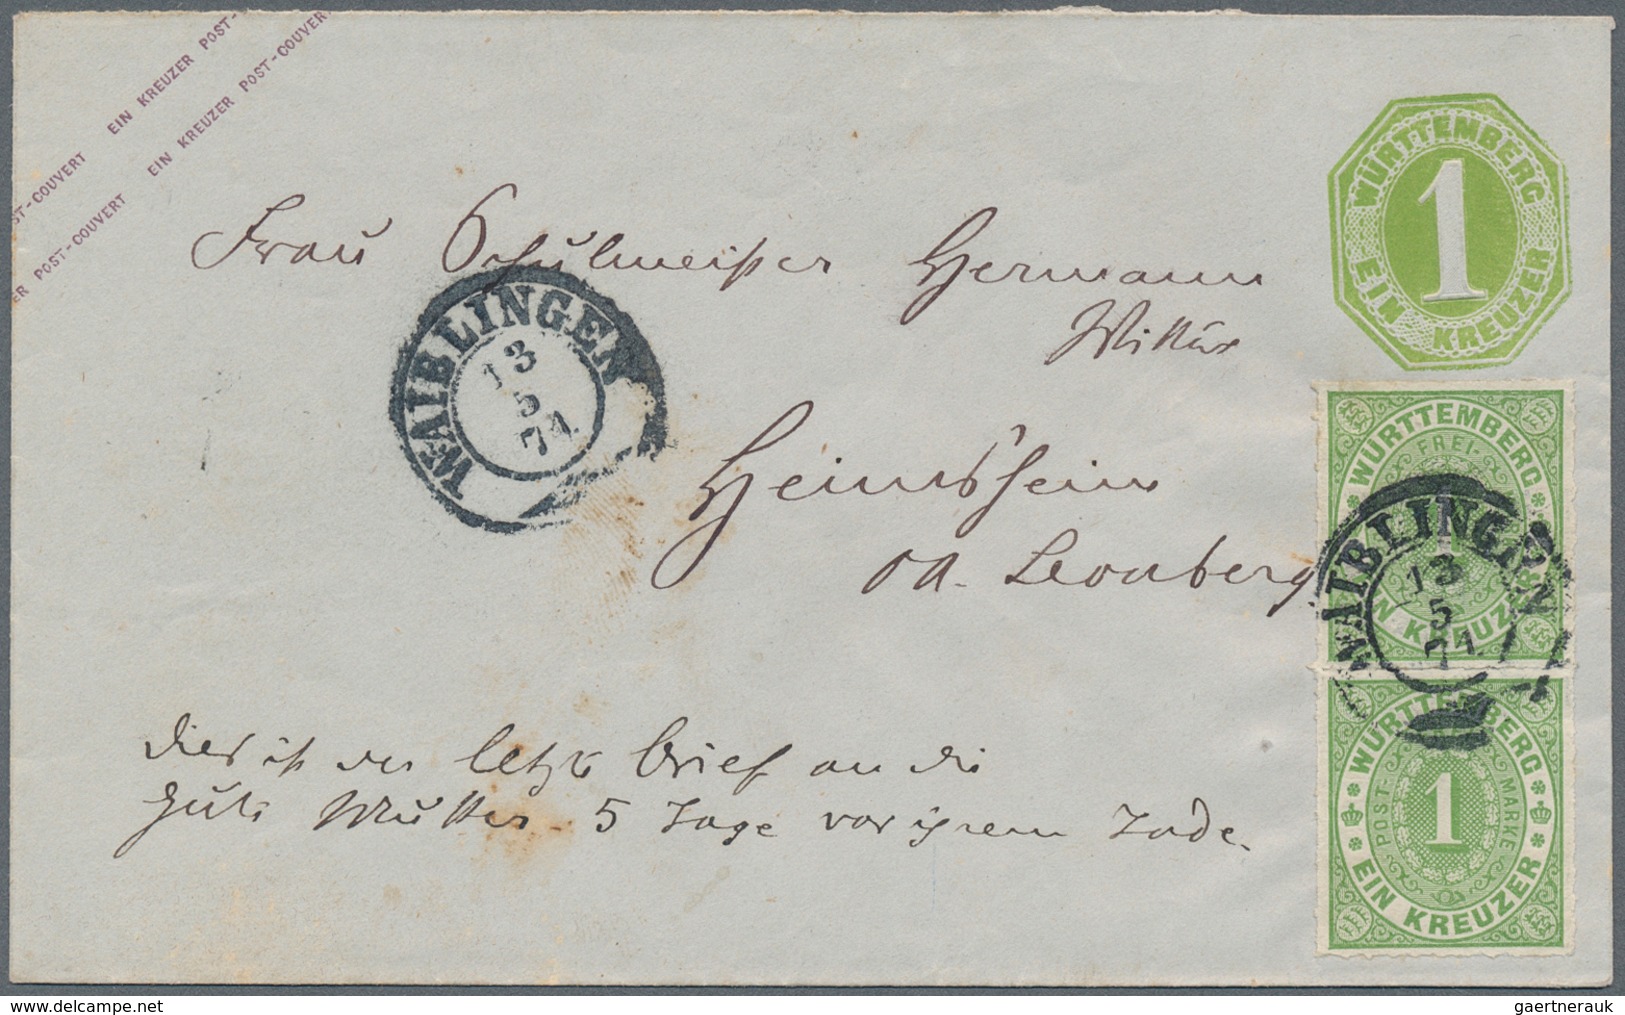 EIN KREUZER POST-
ST-COUVERT EIN KREUZER POST-COUVER
ER POST-COUVERT
WÜRTTEMBERG
1
EIN KREUZER
Frau Schulmeister Hermann
Wittwe
WAIBLINGEN
13
5
74
Heimsheim
OA. Leonberg
WÜRTTEMBERG
FREI-
1
EIN KREUZER
WAIBLINGEN
13
5
74
WÜRTTEMBERG
POST-MARKE
1
EIN KREUZER
Dies ist der letzte Brief an die
gute Mutter 5 Tage vor ihrem Tode.
delcampe.net
gaertnerauk